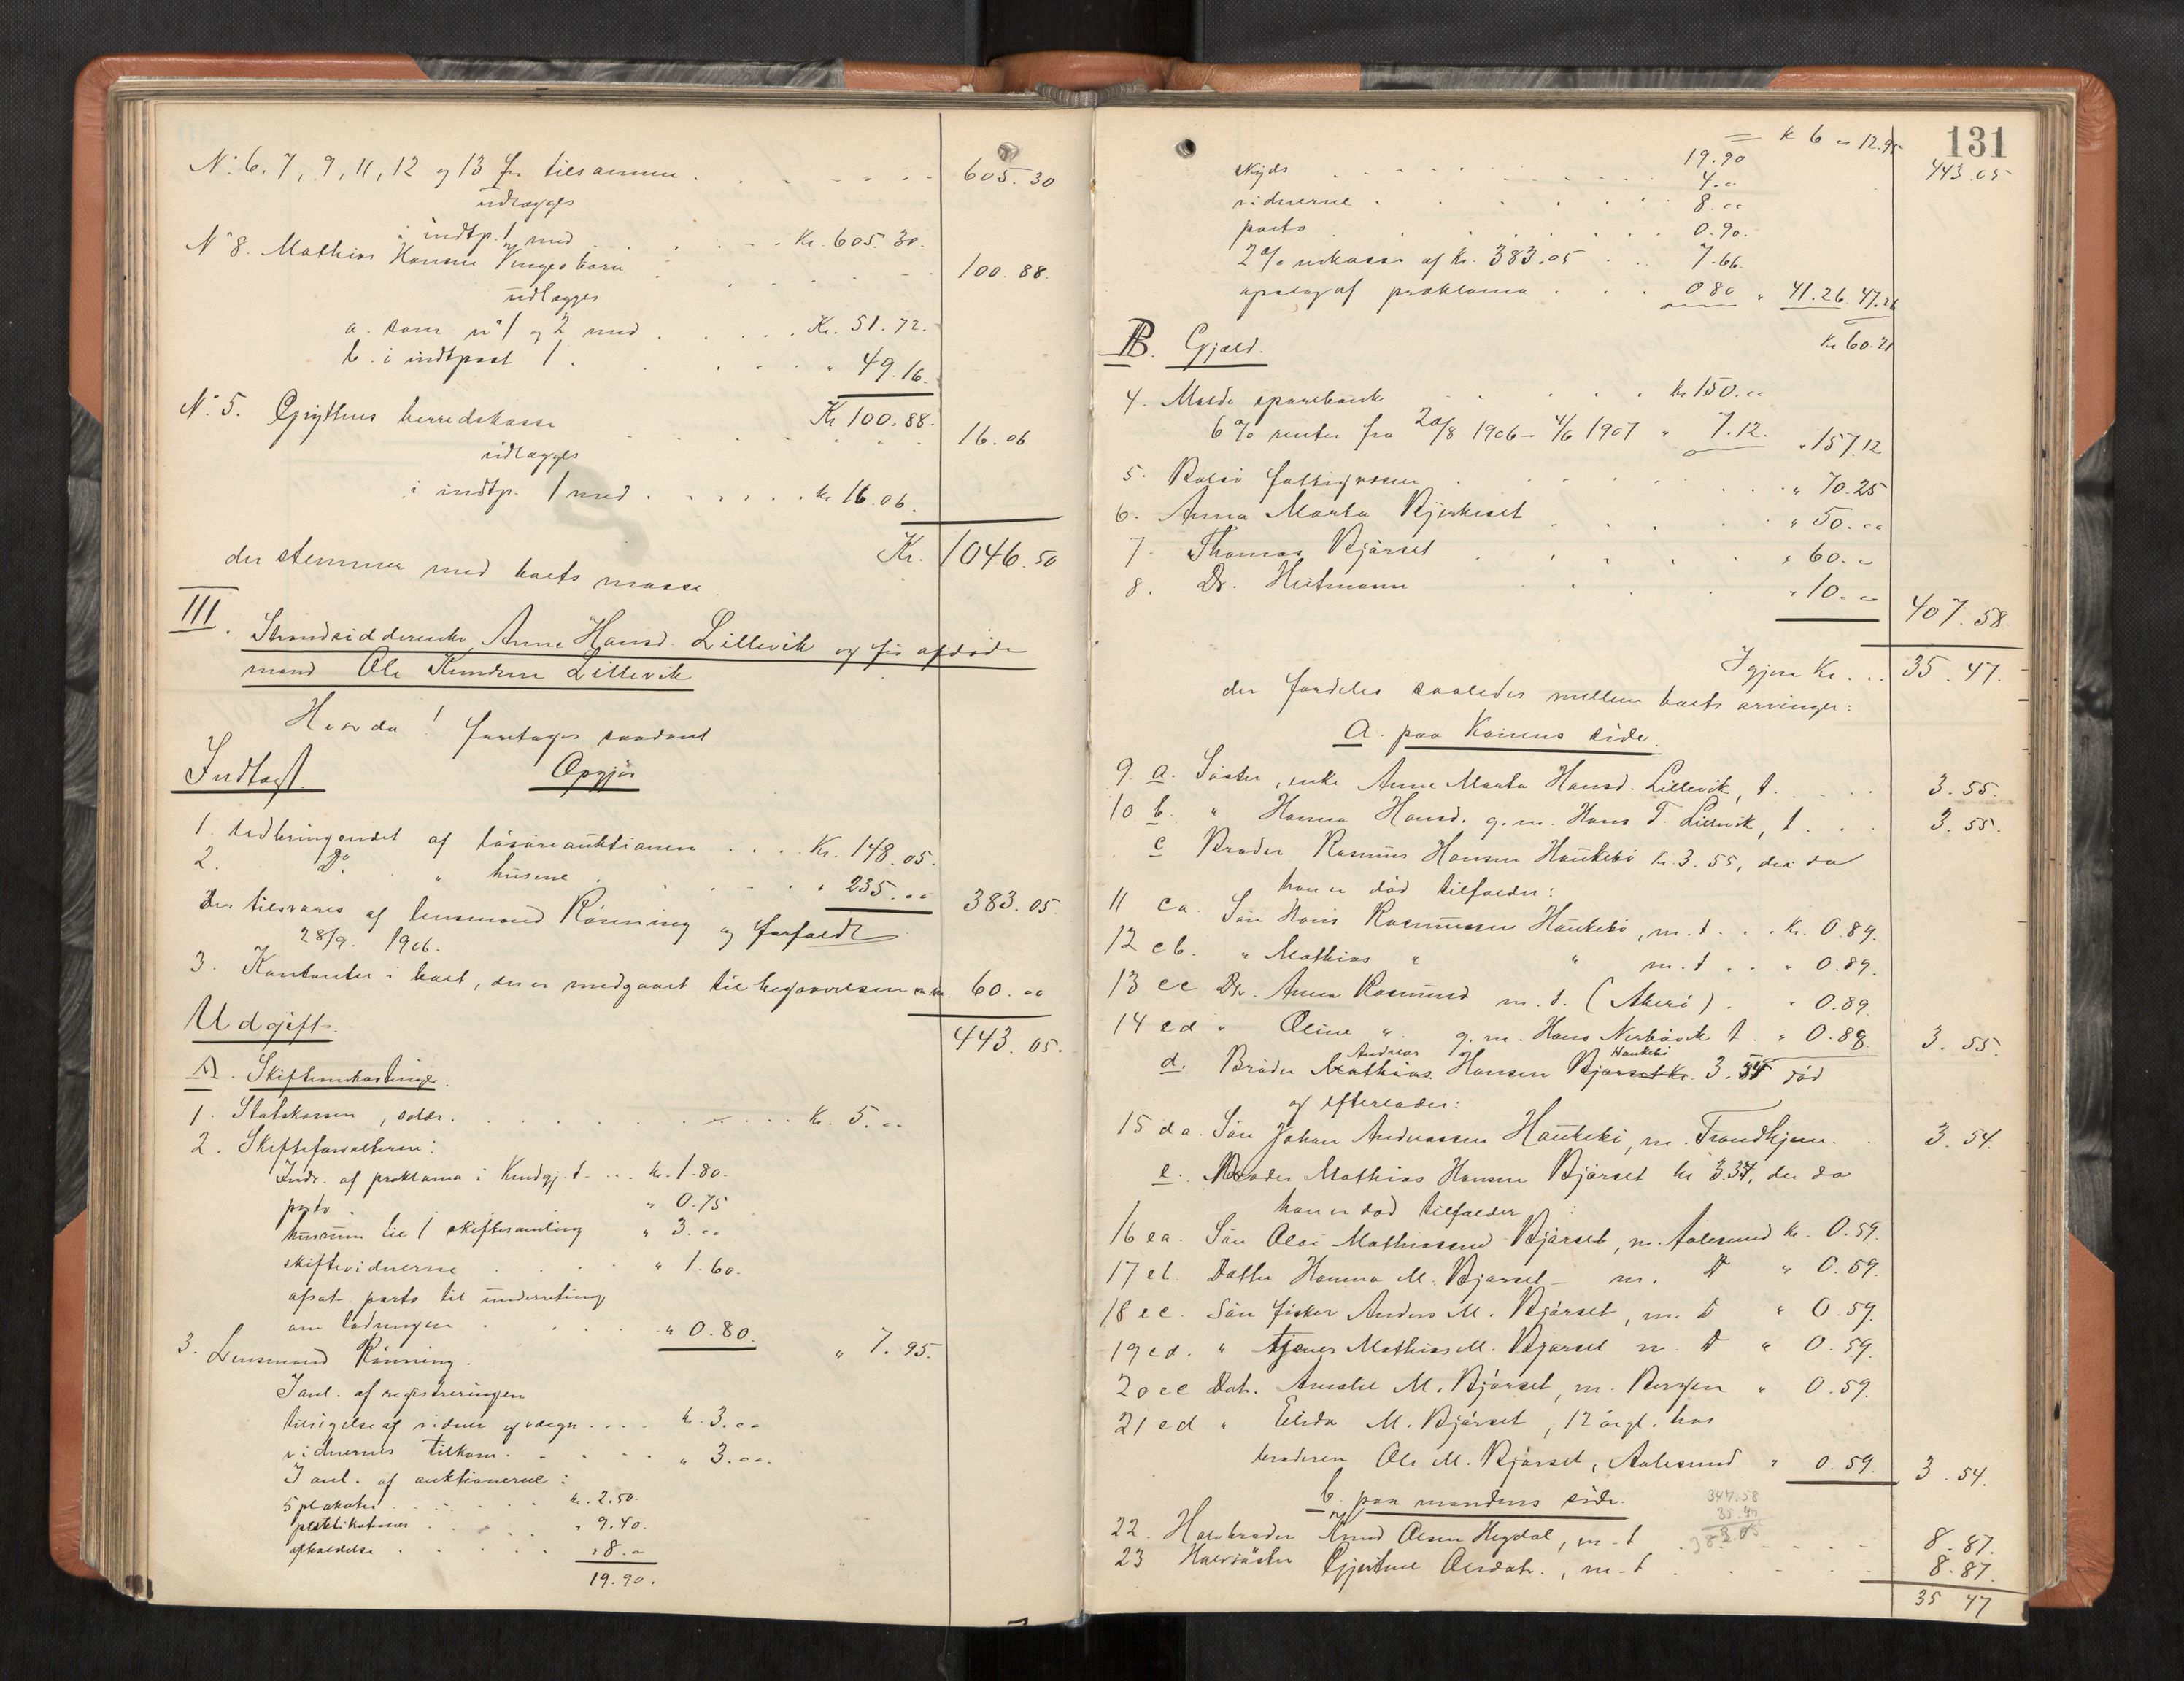 N: 6, 7, 9, 11, 12 og 13 fr. tilsammen . . . . . 605.30
udlægges
i indtp. 1 med . . . . Kr. 605.30.
N° 8. Mathias Hansen Vengesbørn . . . 100.88.
udlægges
a. som n° 1 og 2 med . . . . Kr. 51.72.
b. i indtpost 1 . . . . " 49.16.
Kr 100.88.
N: 5. Gryttens herredskasse . . . . 16.06
udlægges
i indtp. 1 med . . . . . kr 16.06.
Kr. 1046.50
der stemmer med boets masse.
III. Strandsidderenke Anne Hansd. Lillevik og før afdøde
mand Ole Knudsen Lillevik
Hvorda! foretages saadant
Opgjør
Indtægt.
1. Udbringendet af løsøreauktionen . . . . Kr. 148.05.
2. Do. " husene . . . . . " 235.00 383.05.
Der tilsvares af lensmand Rönning og forfaldt
28/9. 1906.
3. Kontanter i boet, der er medgaaet til begravelsen m.m. 60.00
443.05.
Udgift.
A. Skifteomkostninger.
1. Statskassen, . . . . . Kr. 5.00
2. Skifteforvalteren:
Indr. af proklama i Kundgj.t. . . . kr. 1.80.
porto . " 0.75
husrum til 1 skiftesamling " 3.00
skiftevidnerne . . . . " 1.60.
afsat porto til underretning
om lodningen . . . . " 0.80. " 7.95.
3. Lensmand Rönning.
I anl. af registreringen
tilsigelse af vidner og værger . . . . kr. 3.00
vidnernes tilkom. . . . . " 3.00.
I anl. af auktionerne:
5 plakater . . . . . kr. 2.50.
publikationer . . . . " 9.40.
afholdelse . . . . . " 8.00
19.90.
131
= kr 6 " 12.95
skyds . . . . . 19.90 443.05
4.00
vidnerne . . . . . . 8.00
porto . . . . . . 0.90.
2% inkasso af kr. 383.05 . . 7.66.
opslag af proklama . . . 0.80 " 41.26. 47.26
Kr 60.21
B. Gjæld.
4. Molde sparebank . . . . kr 150.00
6% renter fra 20/8 1906 - 4/6 1907 " 7.12. " 157.12
5. Bolsø fattigvæsen . . . . . " 70.25
6. Anna Marta Bjerkeset . . . . " 50.00
7. Thomas Bjørset . . . . . " 60.00
8. Dr. Heitmann . . . . " 10.00 407.58.
Igjen Kr. . . 35.47.
der fordeles saaledes mellem boets arvinger:
A. paa Konens side.
9. a. Søster, enke Anne Marta Hansd. Lillevik, t. . . . . 3.55.
10 b. " Hanna Hansd. g.m. Hans T. Lillevik, t . . . 3.55.
c Broder Rasmus Hansen Haukebø Kr. 3.55, der da
han er død tilfalder:
11 ca. Søn Hans Rasmussen Haukebø, m.t. . . Kr. 0.89.
12 cb. " Mathias " " m.t . . " 0.89.
13 cc Dr. Anna Rasmusd m.t. (Akerø) . " 0.89.
14 cd " Oline " g.m. Hans Nerbøvik t. " 0.88. 3.55.
d. Broder Mathias Andreas Hansen Bjørset Haukebø kr. 3.54 død
og efterlader:
15 da. Søn Johan Andreassen Haukebø, m. Trondhjem. . 3.54.
e. Broder Mathias Hansen Bjørset kr 3.54, der da
han er død tilfalder:
16 ea. Søn Olai Mathiassen Bjørset, m. Aalesund kr. 0.59.
17 eb. Datter Hanna M. Bjørset - m. Do " 0.59.
18 ec. Søn fisker Anders M. Bjørset, m. Do " 0.59.
19 ed. " tjener Mathias M. Bjørset m. Do " 0.59.
20 ee Dat. Amalie M. Bjørset, m. Bergen " 0.59.
21 ed " Elida M. Bjørset, 12 årgl. hos
broderen Ole M. Bjørset, Aalesund " 0.59. 3.54.
b. paa mandens side.
347.58
35.47
383.05
22. Halvbroder Knud Olsen Hegdal, m-t . . . . 8.87.
23 Halvsøster Gjertine Olsdat., m-t . . . . 8.87.
35 47